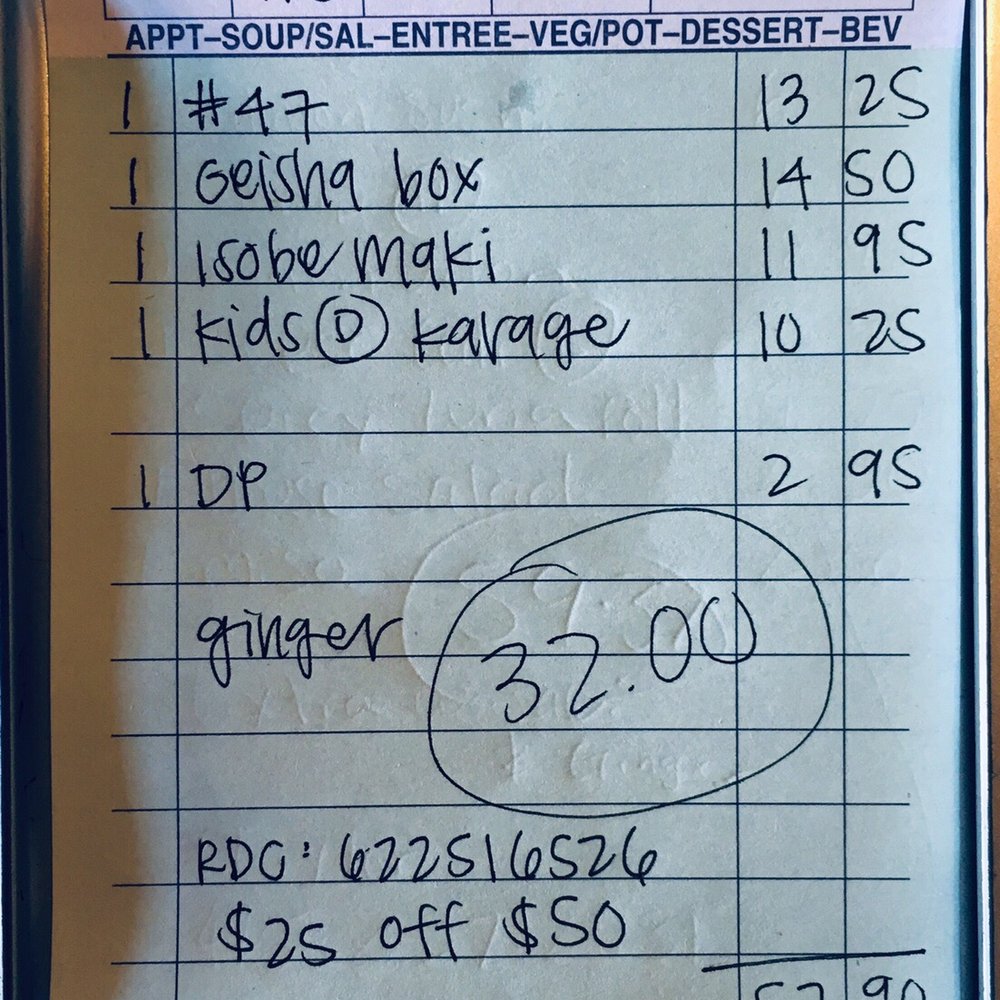 APPT–SOUP/SAL–ENTREE–VEG/POT–DESSERT–BEV
1 #47 13 25
1 Geisha box 14 50
1 Isobe maki 11 95
1 Kids D karage 10 25
1 DP 2 95
ginger
32.00
RDC: 622516526
$25 off $50
52 90